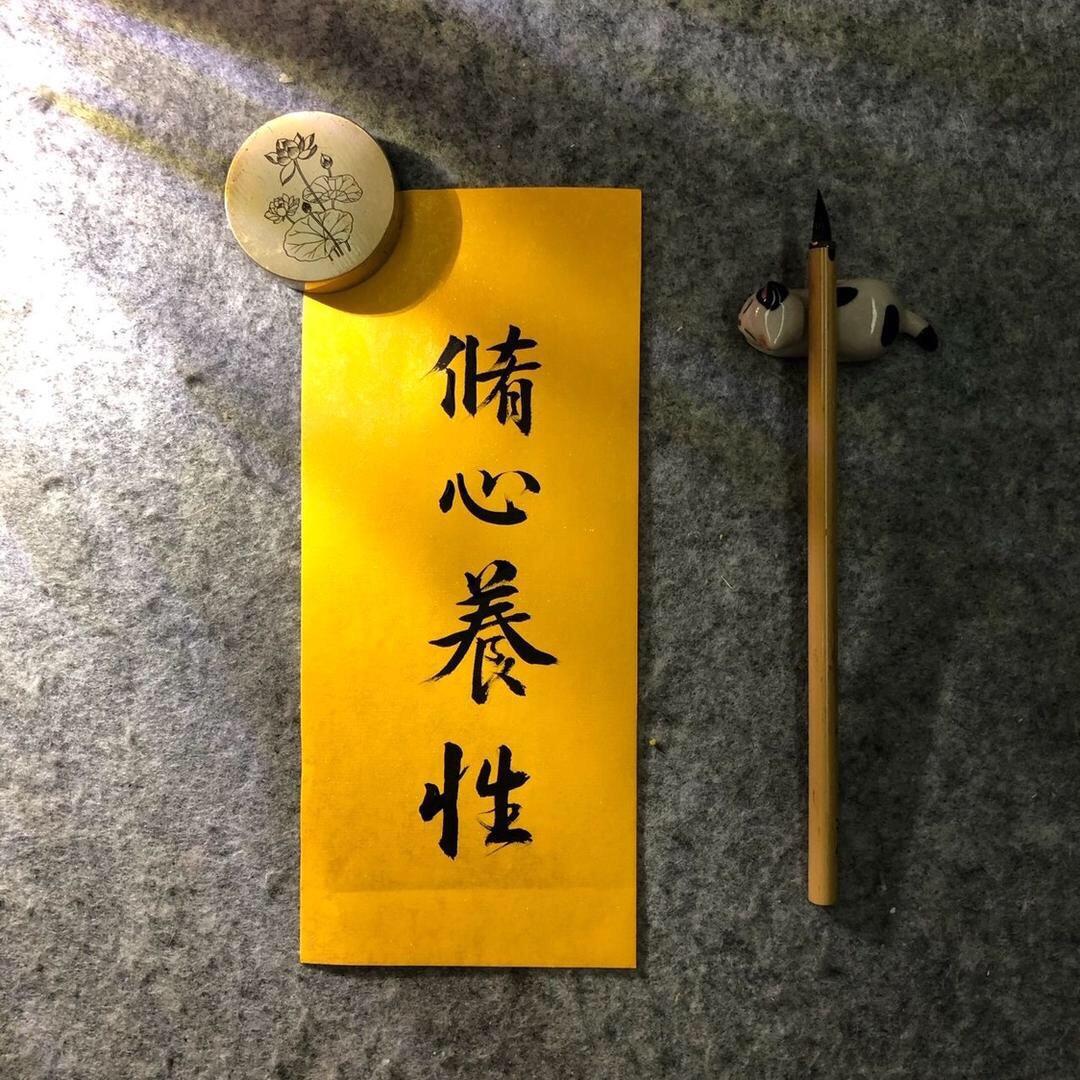 脩心養性